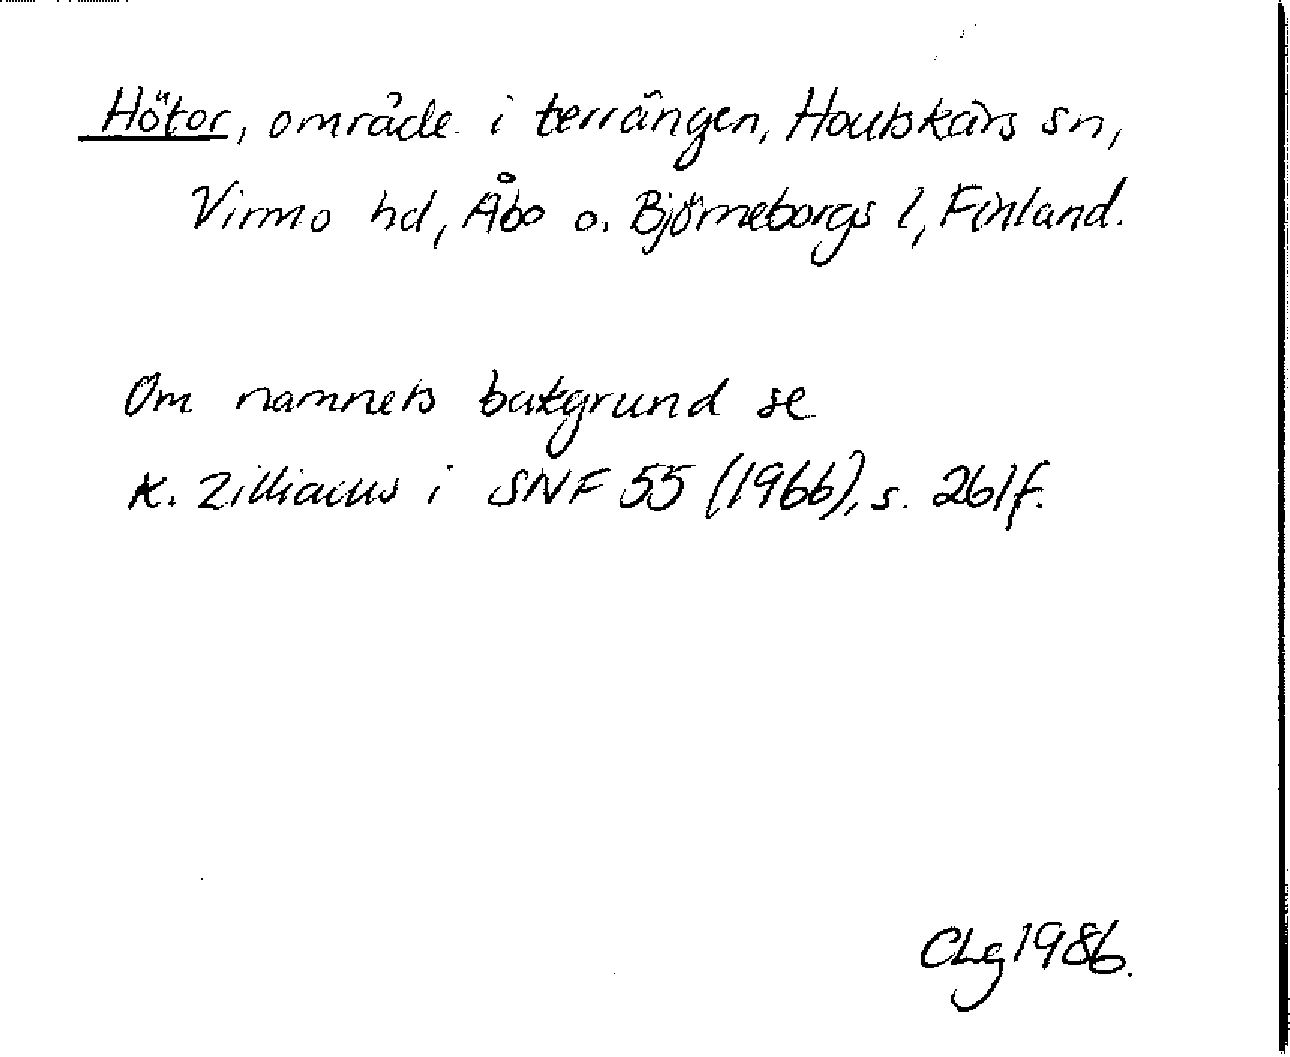 Hötor, område i terrängen, Houtskärs sn,
Virmo hd, Åbo o. Björneborgs l, Finland.
Om namnets bakgrund se
K. Zilliacus i SNF 55 (1966), s. 261f.
CLg 1986.